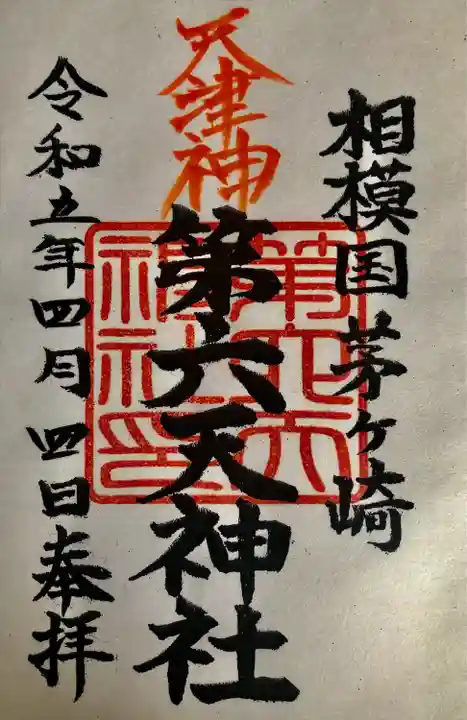 相模国茅ヶ崎
天津神
第六天神社
令和五年四月四日奉拝
第六天
神社印